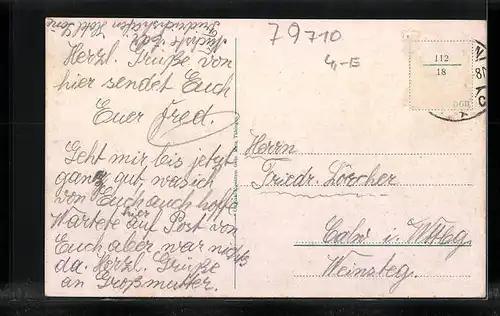 Herzl. Grüße von
hier sendet Euch
Euer Fred.
Geht mir bis jetzt
ganz gut was ich
von Euch auch hoffe
Wartete hier auf Post von
Euch aber war nichts
da. Herzl. Grüße
an Großmutter.
79710
4,-E
112
18
DGB
Herrn
Friedr. Lörcher
Calw i. Wttbg.
Weinsteg.